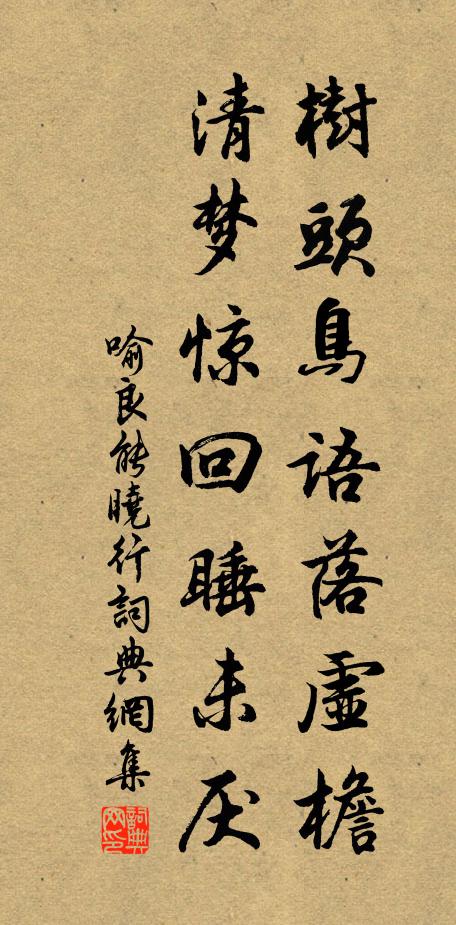 樹頭鳥語落虛檐
清梦惊回睡未厌
喻良能曉行詞典網集
詞典网印